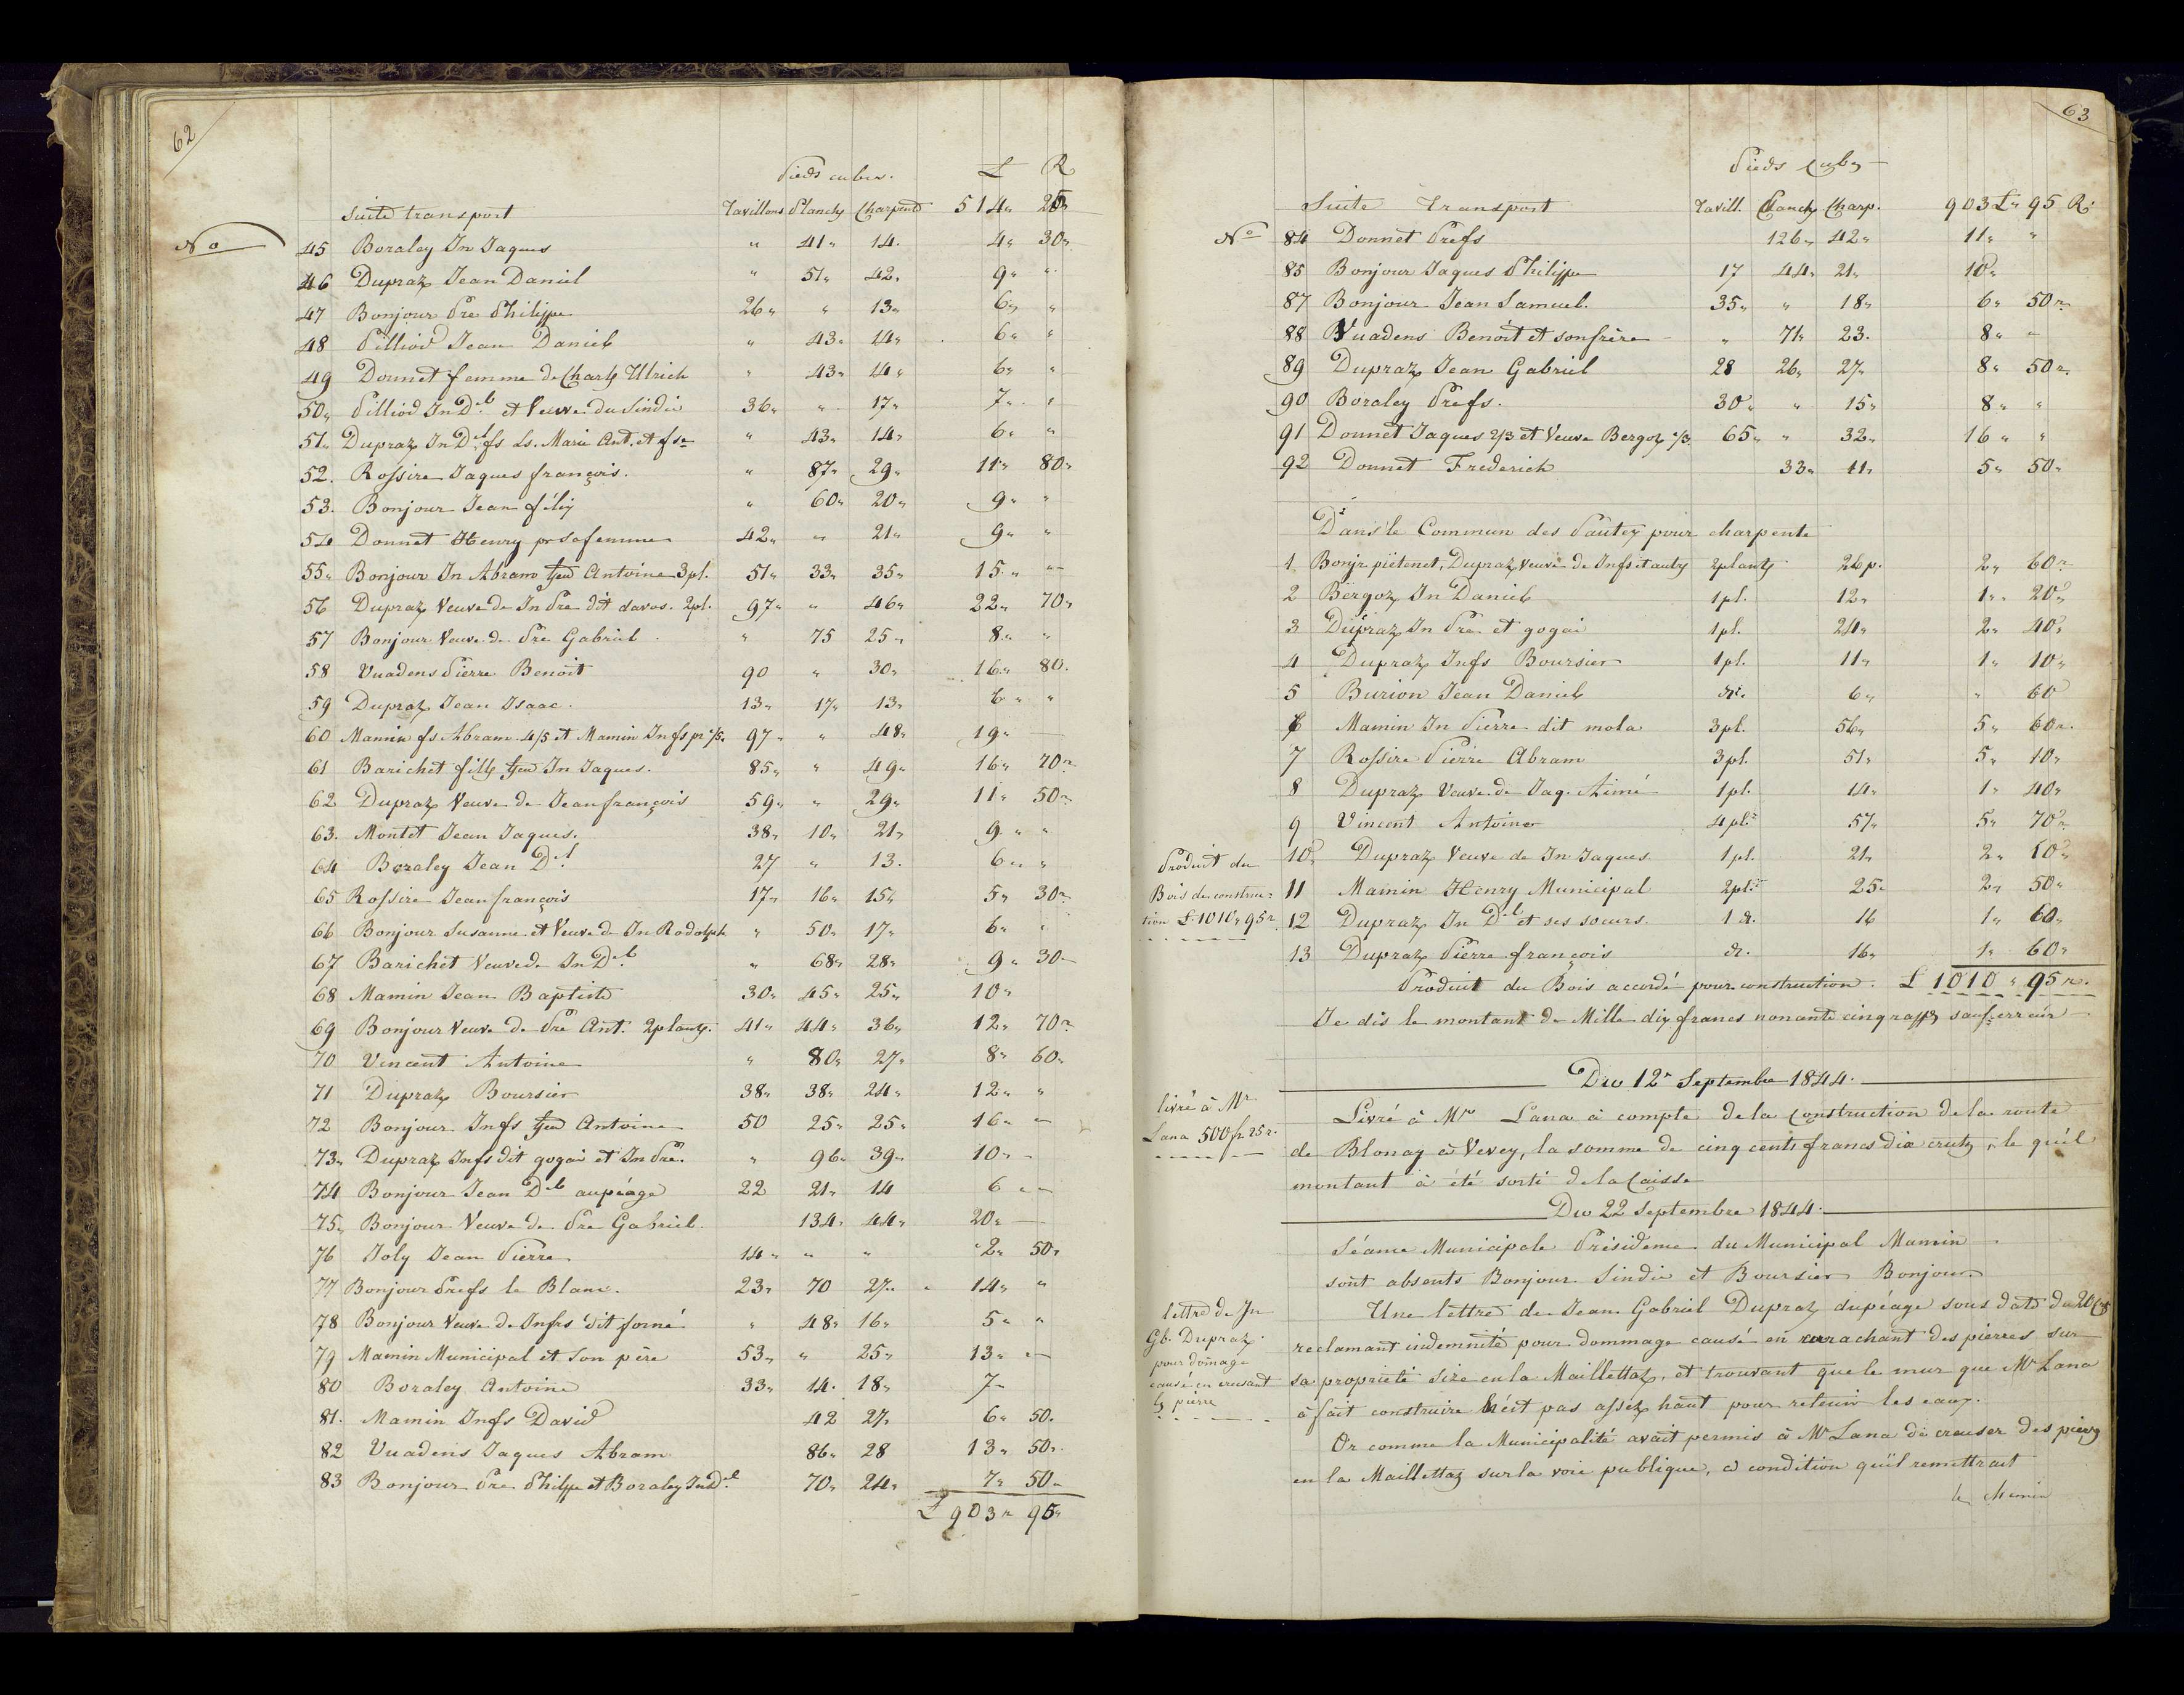 62
Pieds cubes. L R
Suite transport Tavillons Planch Charpente 514" 25"
No
45 Boraley Jn Jaques " 41" 14. 4" 30"
46 Dupraz Jean Daniel " 51" 42" 9" "
47 Bonjour Pre Philippe 26" " 13" 6" "
48 Pilliod Jean Daniel " 43" 14" 6" "
49 Donnet femme de Charls Ulrich " 43" 14" 6" "
50" Pilliod Jn Dl et Veuve du Sindic 36" " 17" 7" "
51" Dupraz Jn Dl fs Ls. Marie Ant. et " 43" 14" 6" "
52. Rossire Jaques françois. " 87" 29" 11" 80"
53. Bonjour Jean félix " 60" 20" 9" "
54 Donnet Henry pr sa femme 42" " 21" 9" "
55" Bonjour Jn Abram feu Antoine 3 pl. 51" 33" 35" 15" "
56 Dupraz Veuve de Jn Pre dit davos. 2pl. 97" " 46" 22" 70"
57 Bonjour Veuve de Pre Gabriel " 75 25" 8" "
58 Vuadens Pierre Benoit 90 " 30" 16" 80.
59 Dupraz Jean Isaac. 13" 17" 13" 6" "
60 Mamin fs Abram 4/5 et Mamin Jn fs pr 1/5. 97" " 48" 19"
61 Barichet fills feu Jn Jaques. 85" " 49" 16" 70"
62 Dupraz Veuve de Jean françois 59" " 29" 11" 50"
63. Montet Jean Jaques. 38" 10" 21" 9" "
64 Boraley Jean Dl 27 " 13. 6" "
65 Rossire Jean françois 17" 16" 15" 5" 30"
66 Bonjour Susanne et Veuve de Jn Rodolph " 50" 17" 6" "
67 Barichet Veuve de Jn Dl " 68" 28" 9" 30
68 Mamin Jean Baptiste 30" 45" 25" 10"
69 Bonjour Veuve de Pre Ant. 2 plants. 41" 44" 36" 12" 70"
70 Vincent Antoine " 80" 27" 8" 60"
71 Dupraz Boursier 38" 38" 24" 12" "
72 Bonjour Jn fs feu Antoine 50 25" 25" 16" "
73" Dupraz Jn fs dit gogai et Jn Pre. " 96" 39" 10" "
74 Bonjour Jean Dl au péage 22 21" 14 6 "
75" Bonjour Veuve de Pre Gabriel. 134" 44" 20"
76 Joly Jean Pierre 14" " " 2" 50"
77 Bonjour Pre fs le Blanc. 23" 70 27" 14" "
78 Bonjour Veuve de Jn frs dit forné " 48" 16" 5" "
79 Mamin Municipal et son père 53" " 25" 13" "
80 Boraley Antoine 33" 14. 18" 7"
81. Mamin Jn fs David 42 27" 6" 50.
82 Vuadens Jaques Abram 86" 28 13" 50"
83 Bonjour Pre Philipe et Boraley Jn Dl 70" 24" 7" 50"
L 903" 95"
63
Pieds Cubs
Suite Transport Tavill. Planch Charp. 903 L" 95 R.
No 84 Donnet Pre fs 126" 42" 11" "
85 Bonjour Jaques Philippe 17 44" 21" 10"
87 Bonjour Jean Samuel. 35" " 18" 6" 50"
88 Vuadens Benoit et son frère " 71" 23. 8" "
89 Dupraz Jean Gabriel 28 26" 27" 8" 50"
90 Boraley Pre fs. 30" " 15" 8" "
91 Donnet Jaques 2/3 et Veuve Bergoz 1/3 65" " 32" 16" "
92 Donnet Frederich 33" 11" 5" 50"
Dans le Commun des Pautex pour charpente
1. Bonjr piétenet, Dupraz Veuve de Jn fs et autrs 2 plants 26 p. 2" 60"
2 Bergoz Jn Daniel 1 pl. 12" 1" 20"
3 Dupraz Jn Pre et gogai 1 pl. 24" 2" 40"
4 Dupraz Jn fs Boursier 1 pl. 11" 1" 10"
5 Burion Jean Daniel 6" " 60
6 Mamin Jn Pierre dit mola 3 pl. 56" 5" 60"
7 Rossire Pierre Abram 3 pl. 51" 5" 10"
8 Dupraz Veuve de Jaq. Aimé 1 pl. 14" 1" 40"
9 Vincent Antoine 4 pl. 57" 5" 70"
10" Dupraz Veuve de Jn Jaques 1 pl. 21" 2" 10"
11 Mamin Henry Municipal 2 pl. 25" 2" 50"
12 Dupraz Jn Dl et ses soeurs. 16 1" 60"
13 Dupraz Pierre françois 16" 1" 60"
Produit du
Bois de construc-
tion L 1010" 95 r.
Produit du Bois accordé pour construction. L 1010" 95 r.
Je dis le montant de Mille dix francs nonante cinq rapps sauf erreur
Du 12e Septembre 1844.
livré à Mr
Lana 500 fr 25 r.
Livré à Mr Lana à compte de la construction de la route
de Blonay à Vevey, la somme de cinq cents francs dix crutz, le quel
montant à été sorti de la Caisse
Du 22 Septembre 1844.
Séance Municipale Présidence du Municipal Mamin
sont absents Bonjour Sindic et Boursier Bonjour
lettre de Jn
Gb. Dupraz
pour domage
causé en creusant
ls pierre
Une lettre de Jean Gabriel Dupraz du péage sous date du 20 Ct
reclamant indemnité pour dommage causé en arrachant des pierres sur
sa propriété size en la Maillettaz, et trouvant que le mur que Mr Lana
à fait construire n'ést pas assez haut pour retenir les eaux.
Or comme la Municipalité avait permis à Mr Lana de creuser des pierrs
en la Maillettaz sur la voie publique, à condition qu'il remettrait
le Memin